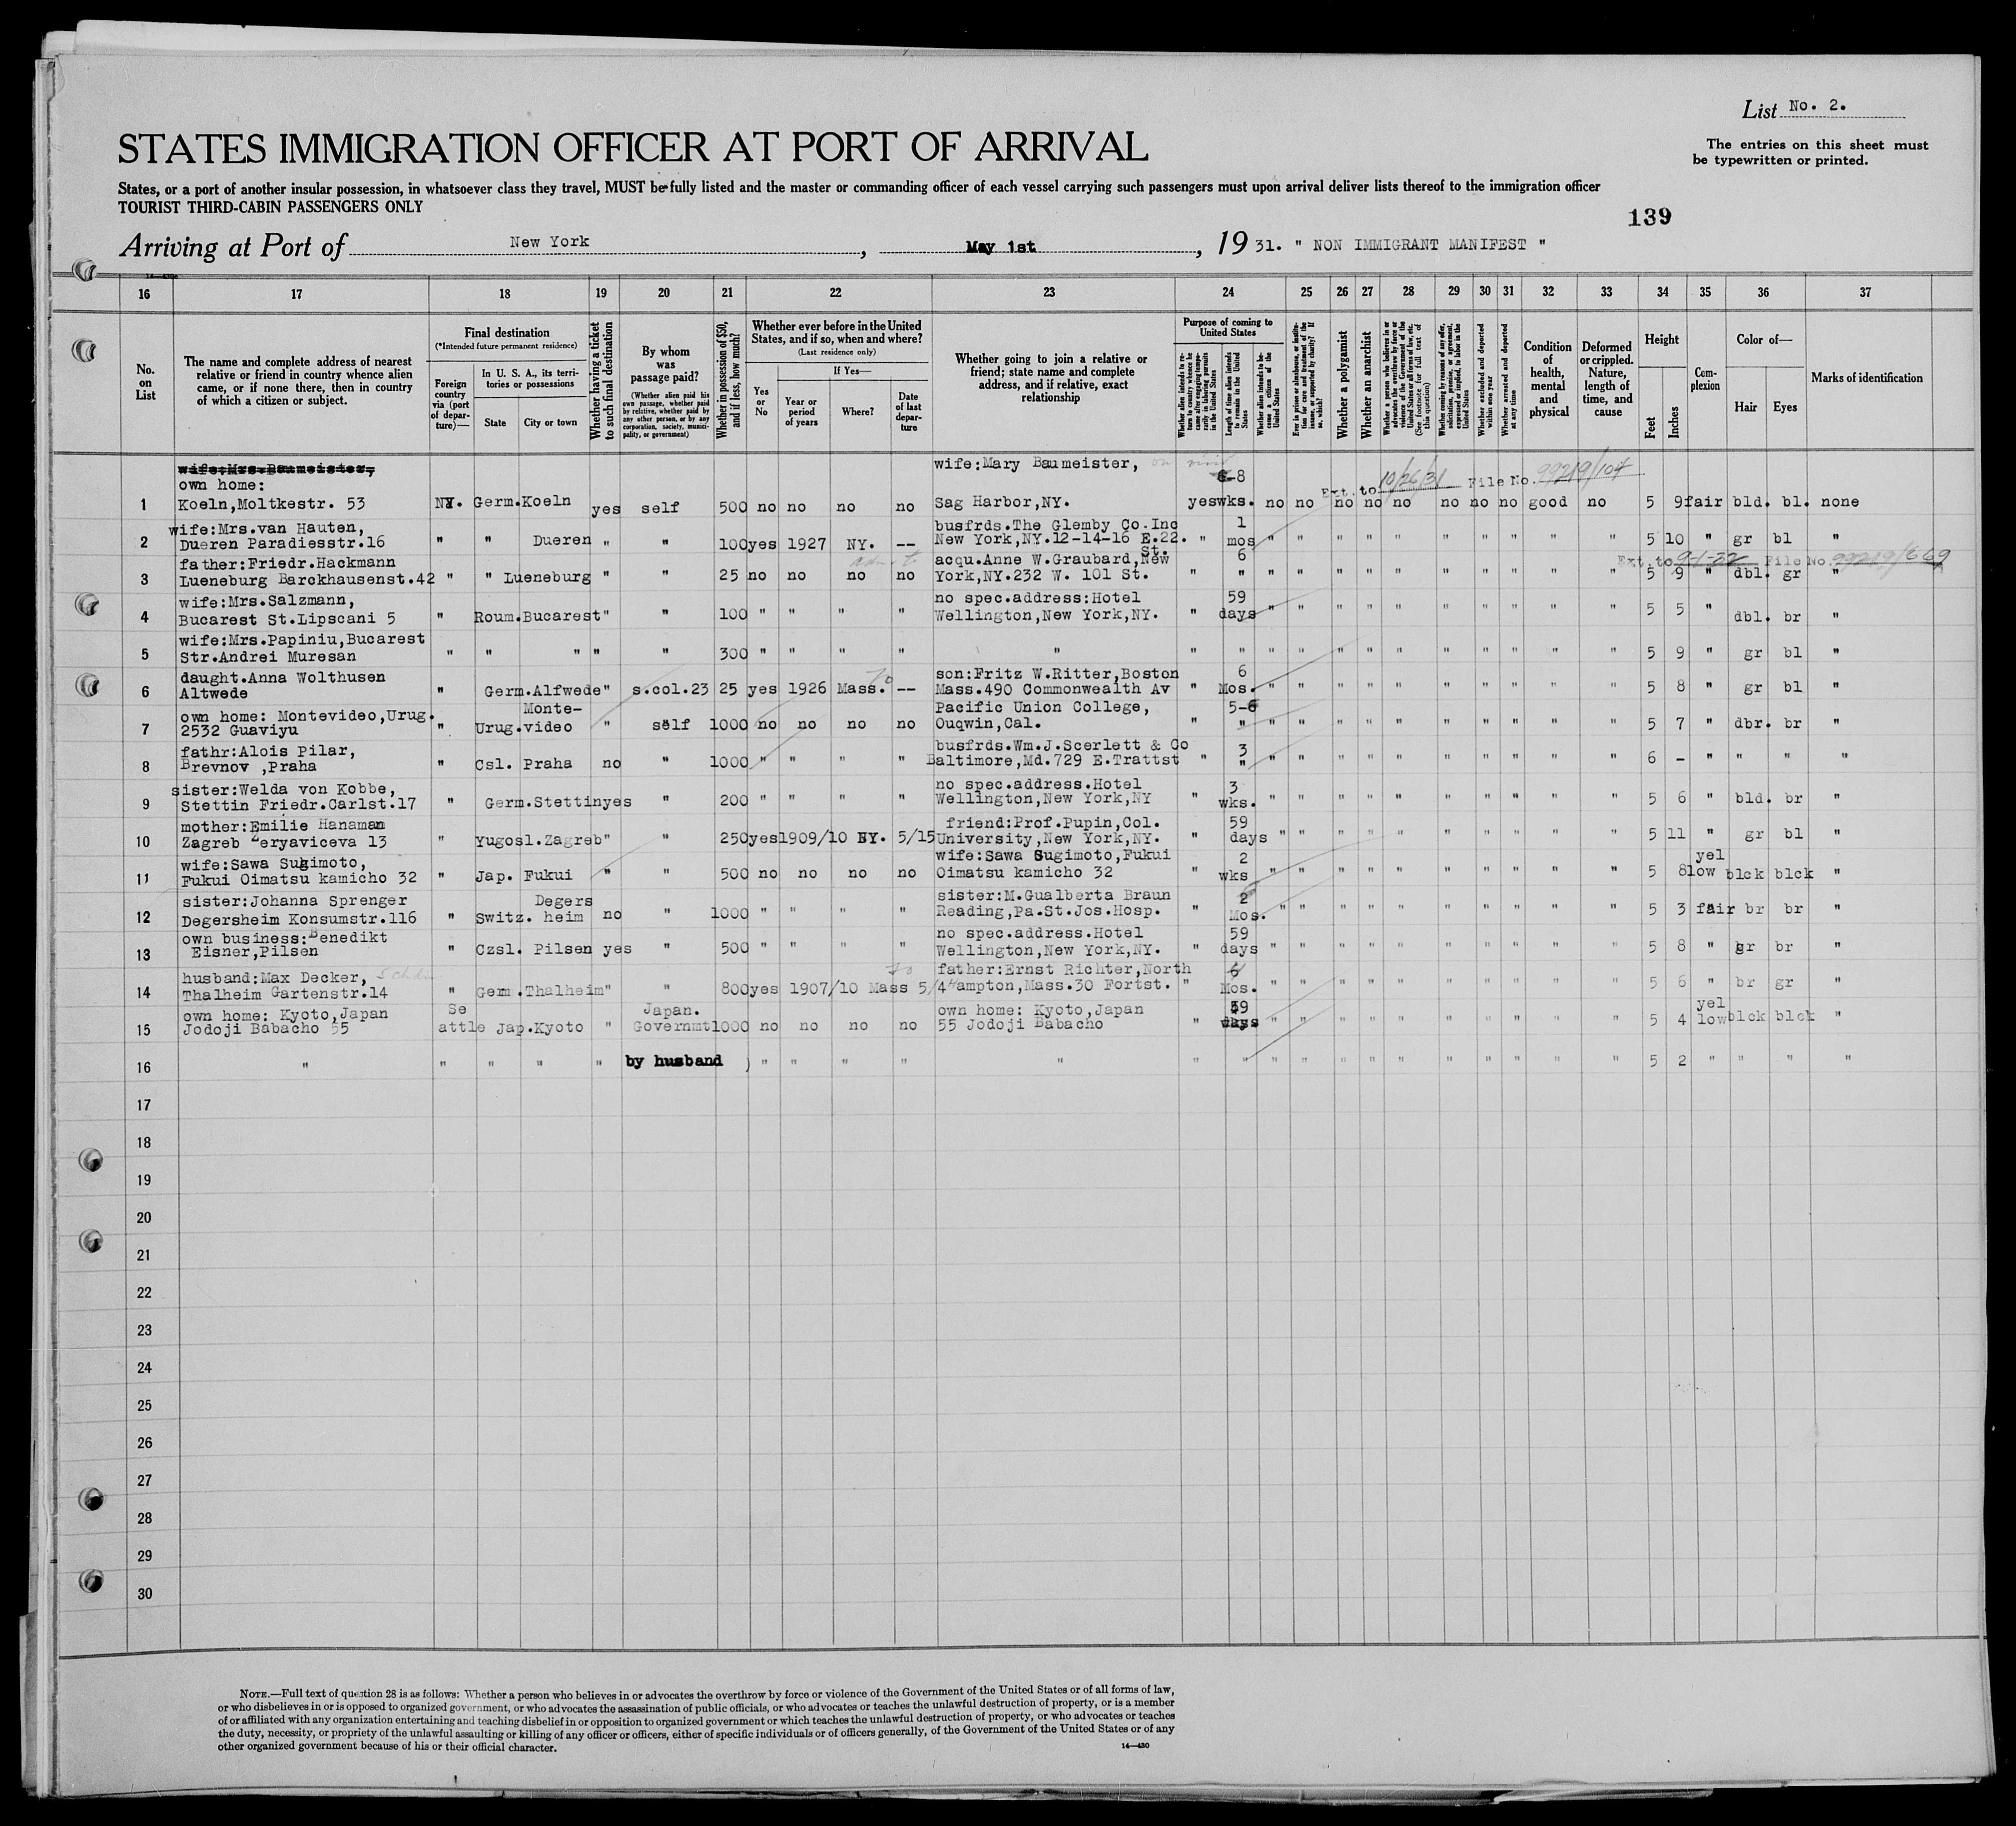 List No. 2.
STATES IMMIGRATION OFFICER AT PORT OF ARRIVAL
The entries on this sheet must
be typewritten or printed.
States, or a port of another insular possession, in whatsoever class they travel, MUST be fully listed and the master or commanding officer of each vessel carrying such passengers must upon arrival deliver lists thereof to the immigration officer
TOURIST THIRD-CABIN PASSENGERS ONLY
139
Arriving at Port of New York, May 1st, 19 31. " NON IMMIGRANT MANIFEST "
16 17 18 19 20 21 22 23 24 25 26 27 28 29 30 31 32 33 34 35 36 37
No. on List
The name and complete address of nearest relative or friend in country whence alien came, or if none there, then in country of which a citizen or subject.
Final destination
(*Intended future permanent residence)
Foreign country via (port of departure)—
In U. S. A., its territories or possessions
State
City or town
Whether having a ticket to such final destination
By whom was passage paid?
(Whether alien paid his own passage, whether paid by relative, whether paid by any other person, or by any corporation, society, municipality, or government)
Whether in possession of $50, and if less, how much?
Whether ever before in the United States, and if so, when and where?
(Last residence only)
Yes or No
If Yes—
Year or period of years
Where?
Date of last departure
Whether going to join a relative or friend; state name and complete address, and if relative, exact relationship
Purpose of coming to United States
Whether alien intends to return to country whence he came after engaging temporarily in laboring pursuits in the United States
Length of time alien intends to remain in the United States
Whether alien intends to become a citizen of the United States
Ever in prison or almshouse, or institution for care and treatment of the insane, or supported by charity? If so, which?
Whether a polygamist
Whether an anarchist
Whether a person who believes in or advocates the overthrow by force or violence of the Government of the United States or all forms of law, etc. (See footnote for full text of this question)
Whether coming by reason of any offer, solicitation, promise, or agreement, expressed or implied, to labor in the United States
Whether excluded and deported within one year
Whether arrested and deported at any time
Condition of health, mental and physical
Deformed or crippled. Nature, length of time, and cause
Height
Feet
Inches
Complexion
Color of—
Hair
Eyes
Marks of identification
wife:Mrs.Baumeister, wife:Mary Baumeister, on visit
own home: 8 Ext. to 10/26/31 File No. 99219/104
1 Koeln,Moltkestr. 53 NY. Germ.Koeln yes self 500 no no no no Sag Harbor,NY. yes wks. no no no no no no no no good no 5 9 fair bld. bl. none
wife:Mrs.van Hauten, busfrds.The Glemby Co.Inc 1
2 Dueren Paradiesstr.16 " " Dueren " " 100 yes 1927 NY. -- New York,NY.12-14-16 E.22. St. " mos " " " " " " " " " " 5 10 " gr bl "
father:Friedr.Hackmann acqu.Anne W.Graubard,New 6 Ext. to 9-1-32 File No. 99219/669
3 Lueneburg Barckhausenst.42 " " Lueneburg " " 25 no no no no York,NY.232 W. 101 St. " " " " " " " " " " " " 5 9 " dbl. gr "
wife:Mrs.Salzmann, no spec.address:Hotel 59
4 Bucarest St.Lipscani 5 " Roum.Bucarest " " 100 " " " " Wellington,New York,NY. " days " " " " " " " " " " 5 5 " dbl. br "
wife:Mrs.Papiniu,Bucarest
5 Str.Andrei Muresan " " " " " 300 " " " " " " " " " " " " " " " " " 5 9 " gr bl "
daught.Anna Wolthusen son:Fritz W.Ritter,Boston 6
6 Altwede " Germ.Alfwede " s.col.23 25 yes 1926 Mass. -- Mass.490 Commonwealth Av " Mos. " " " " " " " " " " 5 8 " gr bl "
own home: Montevideo,Urug. Monte- Pacific Union College, 5-6
7 2532 Guaviyu " Urug.video " self 1000 no no no no Ouqwin,Cal. " " " " " " " " " " " " 5 7 " dbr. br "
fathr:Alois Pilar, busfrds.Wm.J.Scerlett & Co 3
8 Brevnov ,Praha " Csl. Praha no " 1000 " " " " Baltimore,Md.729 E.Trattst " " " " " " " " " " " " 6 - " " " "
sister:Welda von Kobbe, no spec.address.Hotel 3
9 Stettin Friedr.Carlst.17 " Germ.Stettin yes " 200 " " " " Wellington,New York,NY " wks. " " " " " " " " " " 5 6 " bld. br "
mother:Emilie Hanaman friend:Prof.Pupin,Col. 59
10 Zagreb Zeryaviceva 13 " Yugosl.Zagreb " " 250 yes 1909/10 NY. 5/15 University,New York,NY. " days " " " " " " " " " " 5 11 " gr bl "
wife:Sawa Sugimoto, wife:Sawa Sugimoto,Fukui 2 yel
11 Fukui Oimatsu kamicho 32 " Jap. Fukui " " 500 no no no no Oimatsu kamicho 32 " wks " " " " " " " " " " 5 8 low blck blck "
sister:Johanna Sprenger Degers sister:M.Gualberta Braun
12 Degersheim Konsumstr.116 " Switz. heim no " 1000 " " " " Reading,Pa.St.Jos.Hosp. " Mos. " " " " " " " " " " 5 3 fair br br "
own business:Benedikt no spec.address.Hotel 59
13 Eisner,Pilsen " Czsl. Pilsen yes " 500 " " " " Wellington,New York,NY. " days " " " " " " " " " " 5 8 " gr br "
husband:Max Decker, father:Ernst Richter,North
14 Thalheim Gartenstr.14 " Germ.Thalheim " " 800 yes 1907/10 Mass 5/4 hampton,Mass.30 Fortst. " Mos. " " " " " " " " " " 5 6 " br gr "
own home: Kyoto,Japan Se Japan. own home: Kyoto,Japan 59 yel
15 Jodoji Babacho 55 attle Jap.Kyoto " Governmt 1000 no no no no 55 Jodoji Babacho " days " " " " " " " " " " 5 4 low blck blck "
16 " " " " " by husband ) " " " " " " " " " " " " " " " " " 5 2 " " " "
17
18
19
20
21
22
23
24
25
26
27
28
29
30
NOTE.—Full text of question 28 is as follows: Whether a person who believes in or advocates the overthrow by force or violence of the Government of the United States or of all forms of law,
or who disbelieves in or is opposed to organized government, or who advocates the assassination of public officials, or who advocates or teaches the unlawful destruction of property, or is a member
of or affiliated with any organization entertaining and teaching disbelief in or opposition to organized government or which teaches the unlawful destruction of property, or who advocates or teaches
the duty, necessity, or propriety of the unlawful assaulting or killing of any officer or officers, either of specific individuals or of officers generally, of the Government of the United States or of any
other organized government because of his or their official character.
14—430